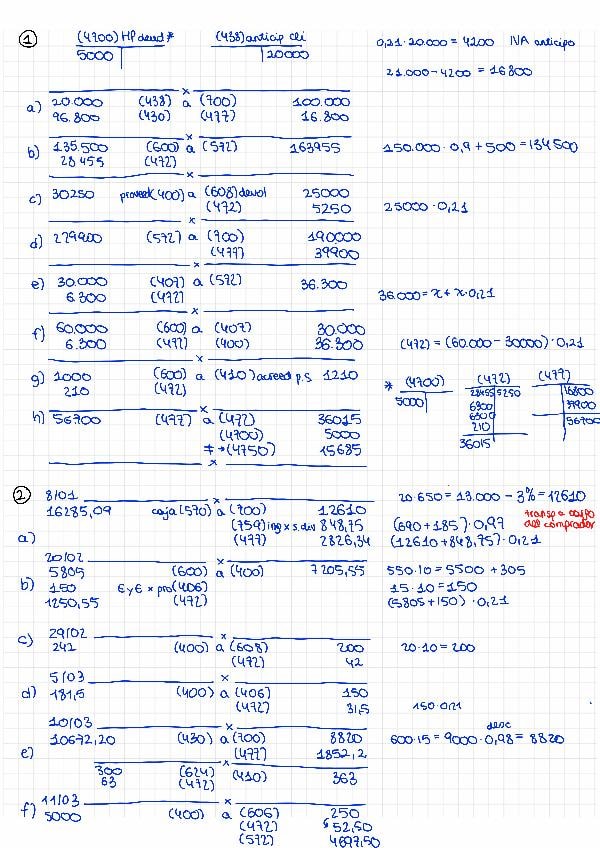 1 (4700) HP deud * (438) anticip cli 0,21·20.000 = 4200 IVA anticipo
5000 20000
21.000-4200 = 16800
a) 20.000 (438) a (700) 100.000
96.800 (430) (477) 16.800
b) 135.500 (600) a (572) 163955 150.000·0,9+500 = 134500
28455 (472)
c) 30250 proveed (400) a (608) devol 25000 25000·0,21
(472) 5250
d) 229900 (572) a (700) 190000
(477) 39900
e) 30.000 (407) a (572) 36.300 36.000 = x + x·0,21
6.300 (472)
f) 60.000 (600) a (407) 30.000
6.300 (472) (400) 36.300 (472) = (60.000 - 30000)·0,21
g) 1000 (600) a (410) acreed p.s 1210
210 (472)
* (4700) (472) (477)
5000 28455 5250 16800
6300 39900
6300 56700
210
36015
h) 56700 (477) a (472) 36015
(4700) 5000
≠→(4750) 15685
2 8/01
16285,09 caja (570) a (700) 12610 20·650 = 13.000 - 3% = 12610
(759) ing x s.div 848,75 (690+185)·0,97 transp a cargo del comprador
a) (477) 2826,34 (12610+848,75)·0,21
20/02
5805 (600) a (400) 7205,55 550·10 = 5500 + 305
b) 150 EyE x pro (406) 15·10 = 150
1250,55 (472) (5805+150)·0,21
29/02
c) 242 (400) a (608) 200 20·10 = 200
(472) 42
5/03
d) 181,5 (400) a (406) 150
(472) 31,5 150·0,21
10/03
10672,20 (430) a (700) 8820 600·15 = 9000·0,98 = 8820 desc
e) (477) 1852,2
300 (624) (410) 363
63 (472)
11/03
f) 5000 (400) a (606) 250
(472) 52,50
(572) 4697,50